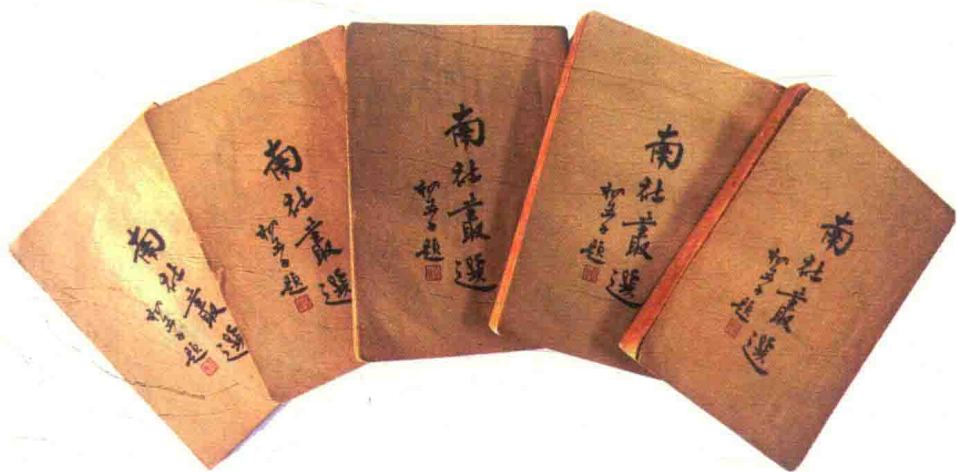 南社叢選
柳亞子題
南社叢選
柳亞子題
南社叢選
柳亞子題
南社叢選
柳亞子題
南社叢選
柳亞子題